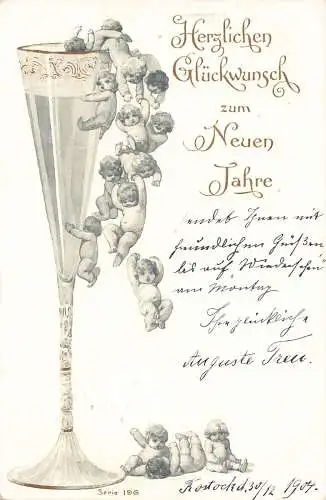 Herzlichen
Glückwunsch
zum
Neuen
Jahre
sendet Ihnen mit
freundlichen Grüßen
bis auf „Wiedersehen“
am Montag
Ihre glückliche
Auguste Treu.
Serie 196
Rostock d. 30/12 1904.